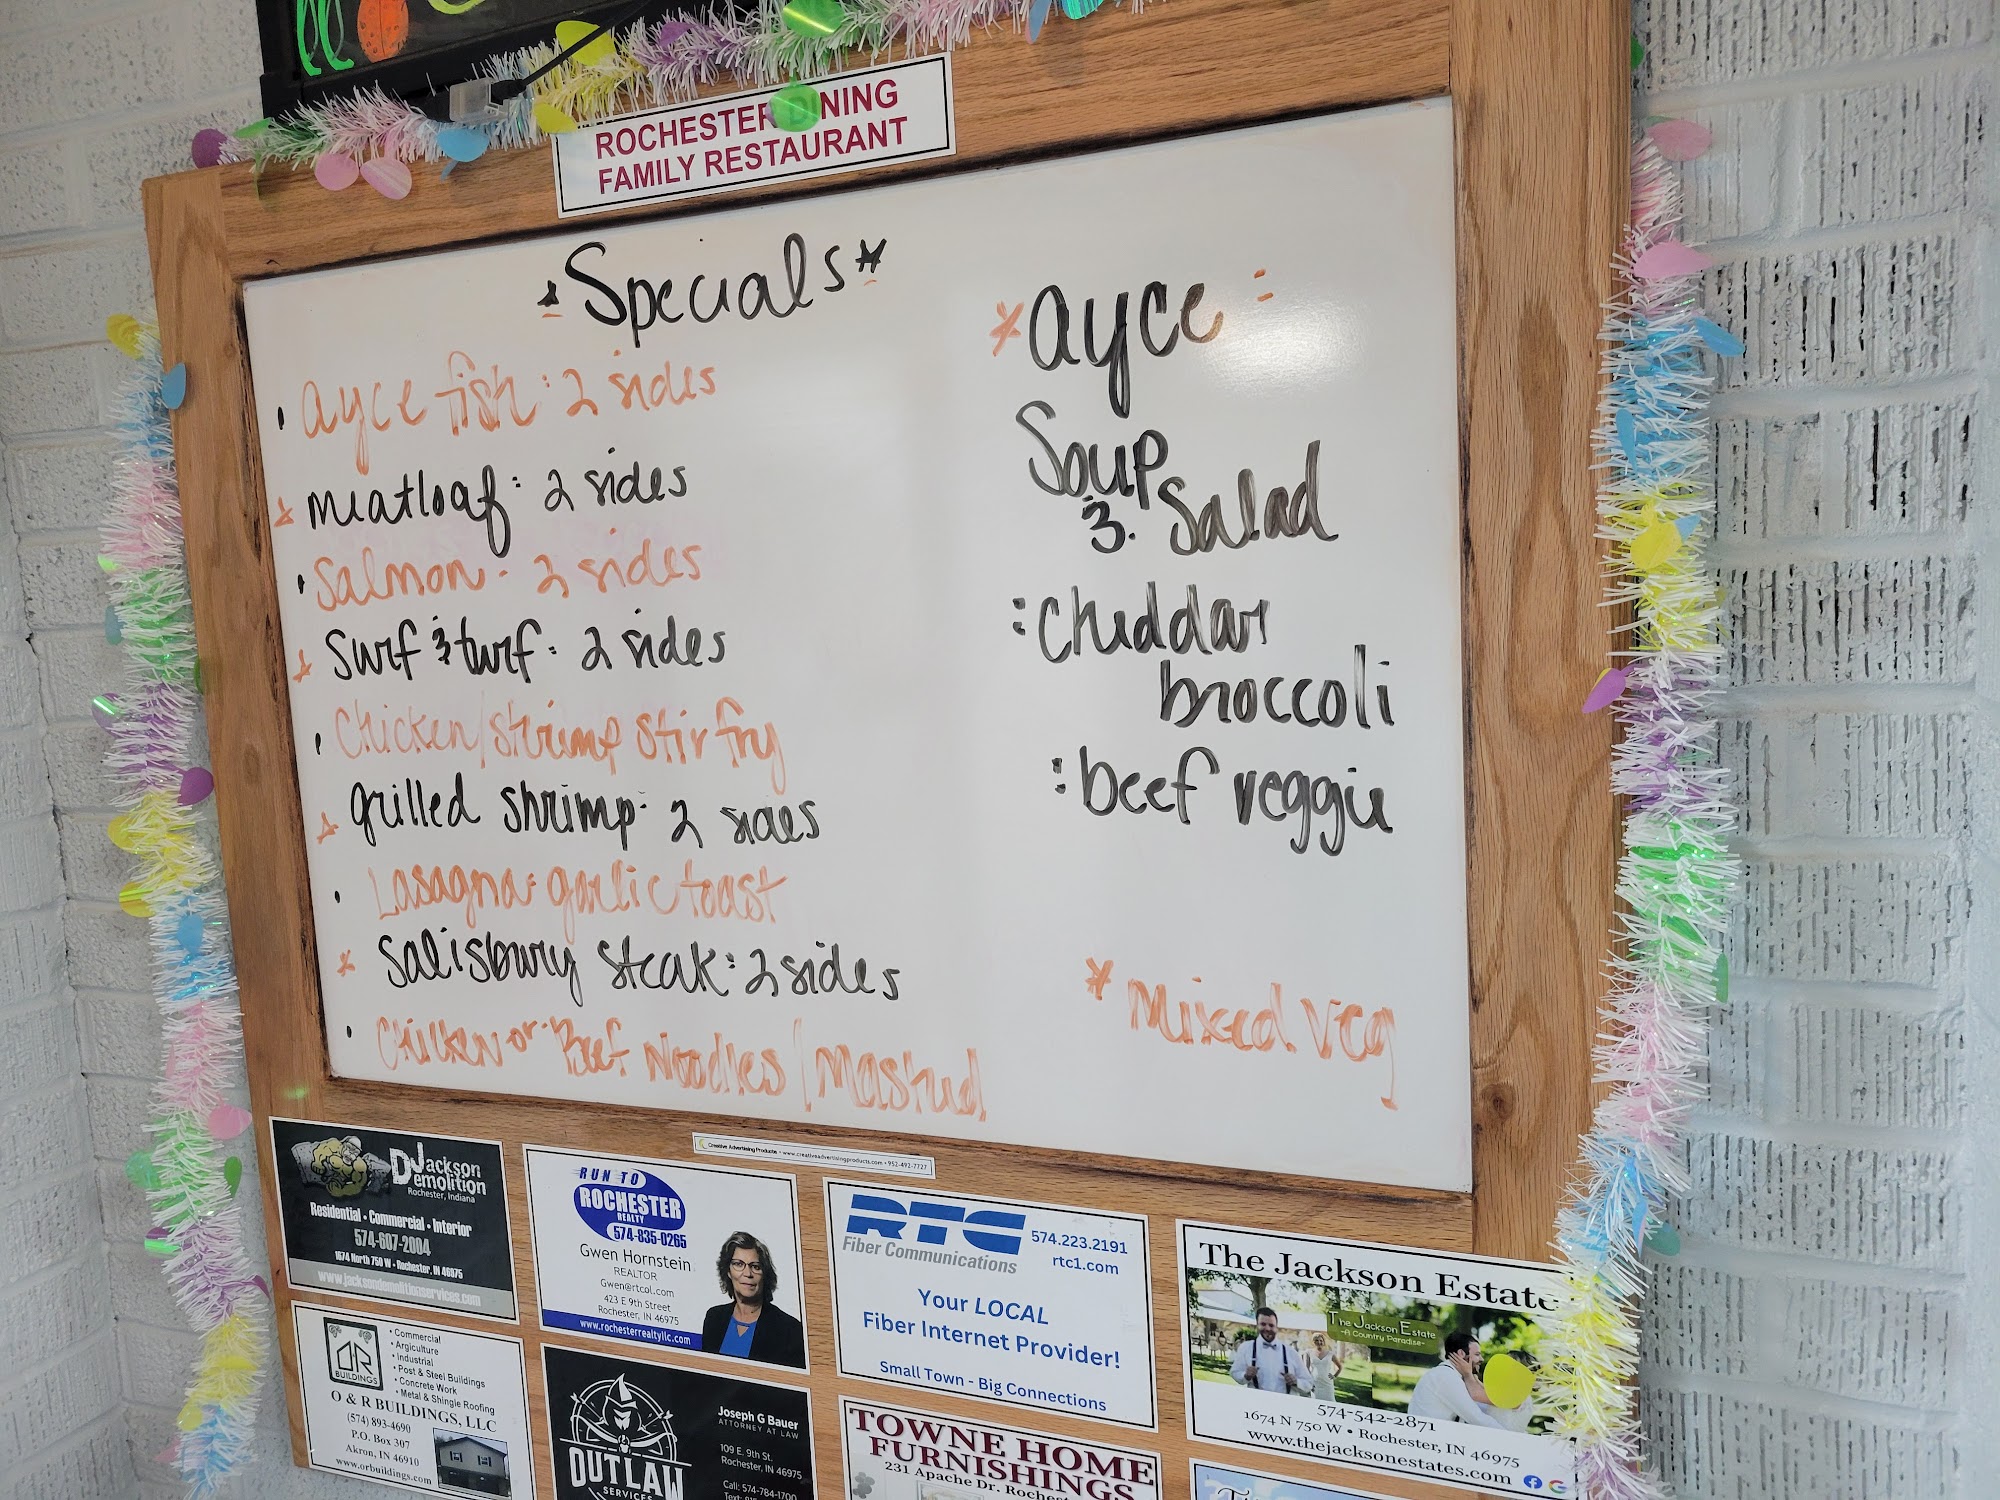 ROCHESTER DINING
FAMILY RESTAURANT
*Specials*
• ayce fish: 2 sides
* meatloaf: 2 sides
• Salmon - 2 sides
* Surf & turf: 2 sides
• Chicken/shrimp stir fry
* grilled shrimp - 2 sides
• Lasagna: garlic toast
* Salisbury steak: 2 sides
• Chicken or Beef Noodles / Mashed
* ayce :
Soup
& Salad
: Cheddar
broccoli
: beef veggie
* Mixed Veg
Creative Advertising Products • www.creativeadvertisingproducts.com • 952-492-7727
Jackson
Demolition
Rochester, Indiana
Residential • Commercial • Interior
574-607-2004
1674 North 750 W • Rochester, IN 46975
www.jacksondemolitionservices.com
RUN TO
ROCHESTER
REALTY
574-835-0265
Gwen Hornstein
REALTOR
Gwen@rtcol.com
423 E 9th Street
Rochester, IN 46975
www.rochesterrealtyllc.com
RTC
Fiber Communications
574.223.2191
rtc1.com
Your LOCAL
Fiber Internet Provider!
Small Town - Big Connections
The Jackson Estate
The Jackson Estate
~A Country Paradise~
574-542-2871
1674 N 750 W • Rochester, IN 46975
www.thejacksonestates.com
OR
BUILDINGS
• Commercial
• Argiculture
• Industrial
• Post & Steel Buildings
• Concrete Work
• Metal & Shingle Roofing
O & R BUILDINGS, LLC
(574) 893-4690
P.O. Box 307
Akron, IN 46910
www.orbuildings.com
OUTLAW
SERVICES
Joseph G Bauer
ATTORNEY AT LAW
109 E. 9th St.
Rochester, IN 46975
Call: 574-784-1700
TOWNE HOME
FURNISHINGS
231 Apache Dr. Rochest